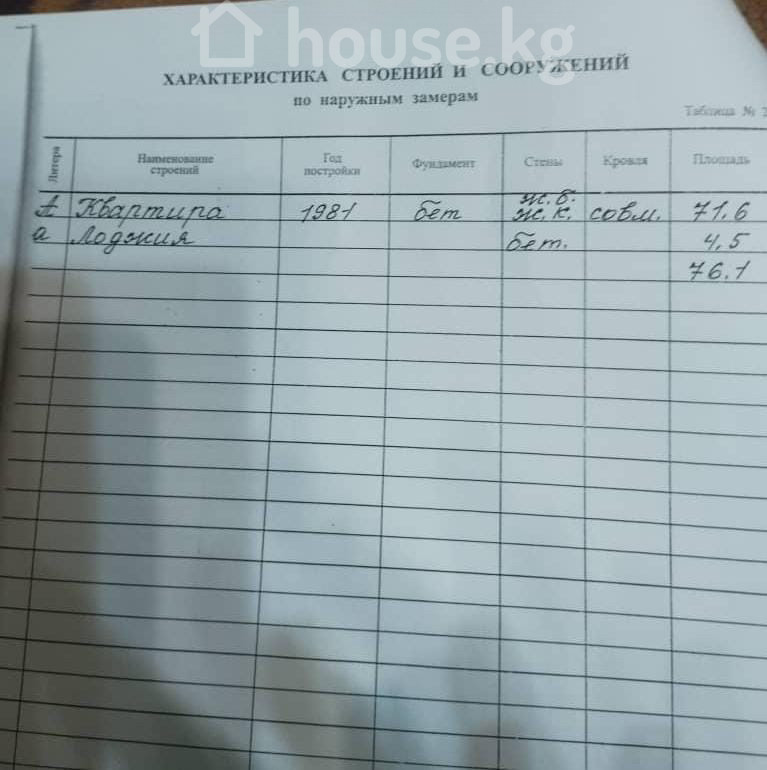 house.kg
ХАРАКТЕРИСТИКА СТРОЕНИЙ И СООРУЖЕНИЙ
по наружным замерам
Таблица №
Литера Наименование строений Год постройки Фундамент Стены Кровля Площадь
А Квартира 1981 бет ж.б. ж.к. совм. 71,6
а Лоджия бет. 4,5
76.1